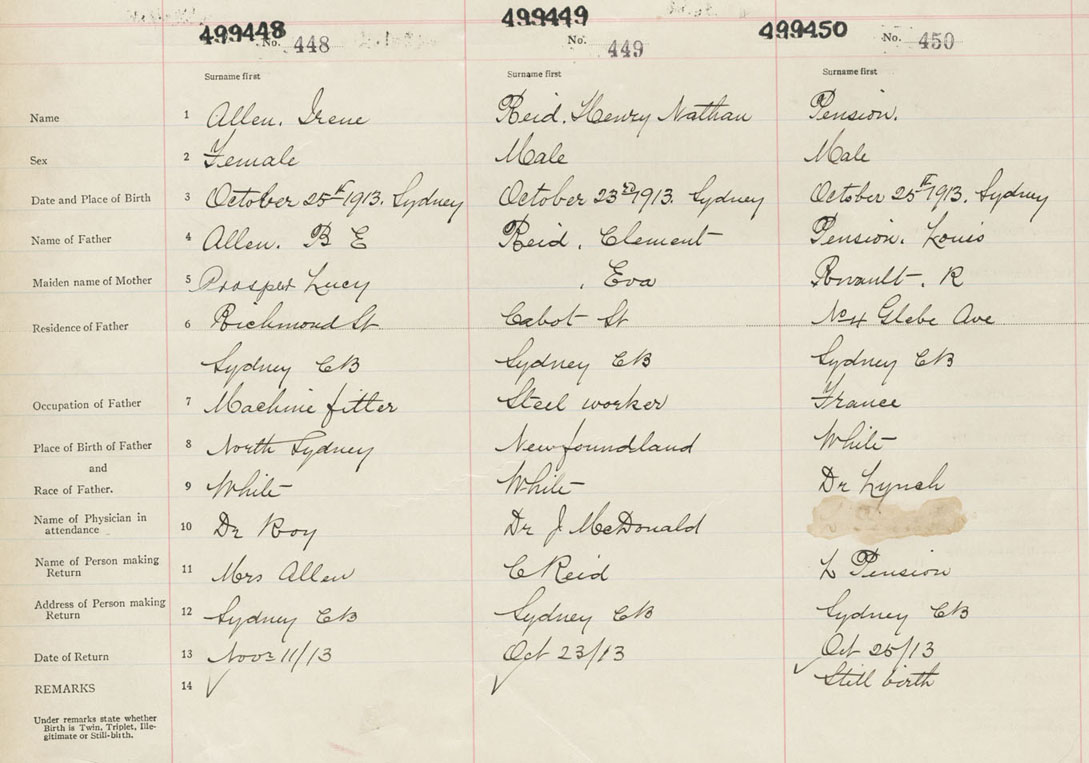 499448 No. 448 499449 No. 449 499450 No. 450
Surname first Surname first Surname first
Name 1 Allen. Irene Reid. Henry Nathan Pension.
Sex 2 Female Male Male
Date and Place of Birth 3 October 25th 1913. Sydney October 23rd 1913. Sydney October 25th 1913. Sydney
Name of Father 4 Allen. B E Reid. Clement Pension. Louis
Maiden name of Mother 5 Prosper Lucy , Eva R
Residence of Father 6 Richmond St Cabot St No 4 Glebe Ave
Sydney CB Sydney CB Sydney CB
Occupation of Father 7 Machine fitter Steel worker France
Place of Birth of Father 8 North Sydney Newfoundland White
and
Race of Father. 9 White White Dr Lynch
Name of Physician in
attendance 10 Dr Roy Dr J McDonald
Name of Person making
Return 11 Mrs Allen C Reid L Pension
Address of Person making
Return 12 Sydney CB Sydney CB Sydney CB
Date of Return 13 Nov 11/13 Oct 23/13 Oct 25/13
REMARKS 14 Still birth
Under remarks state whether
Birth is Twin, Triplet, Ille-
gitimate or Still-birth.